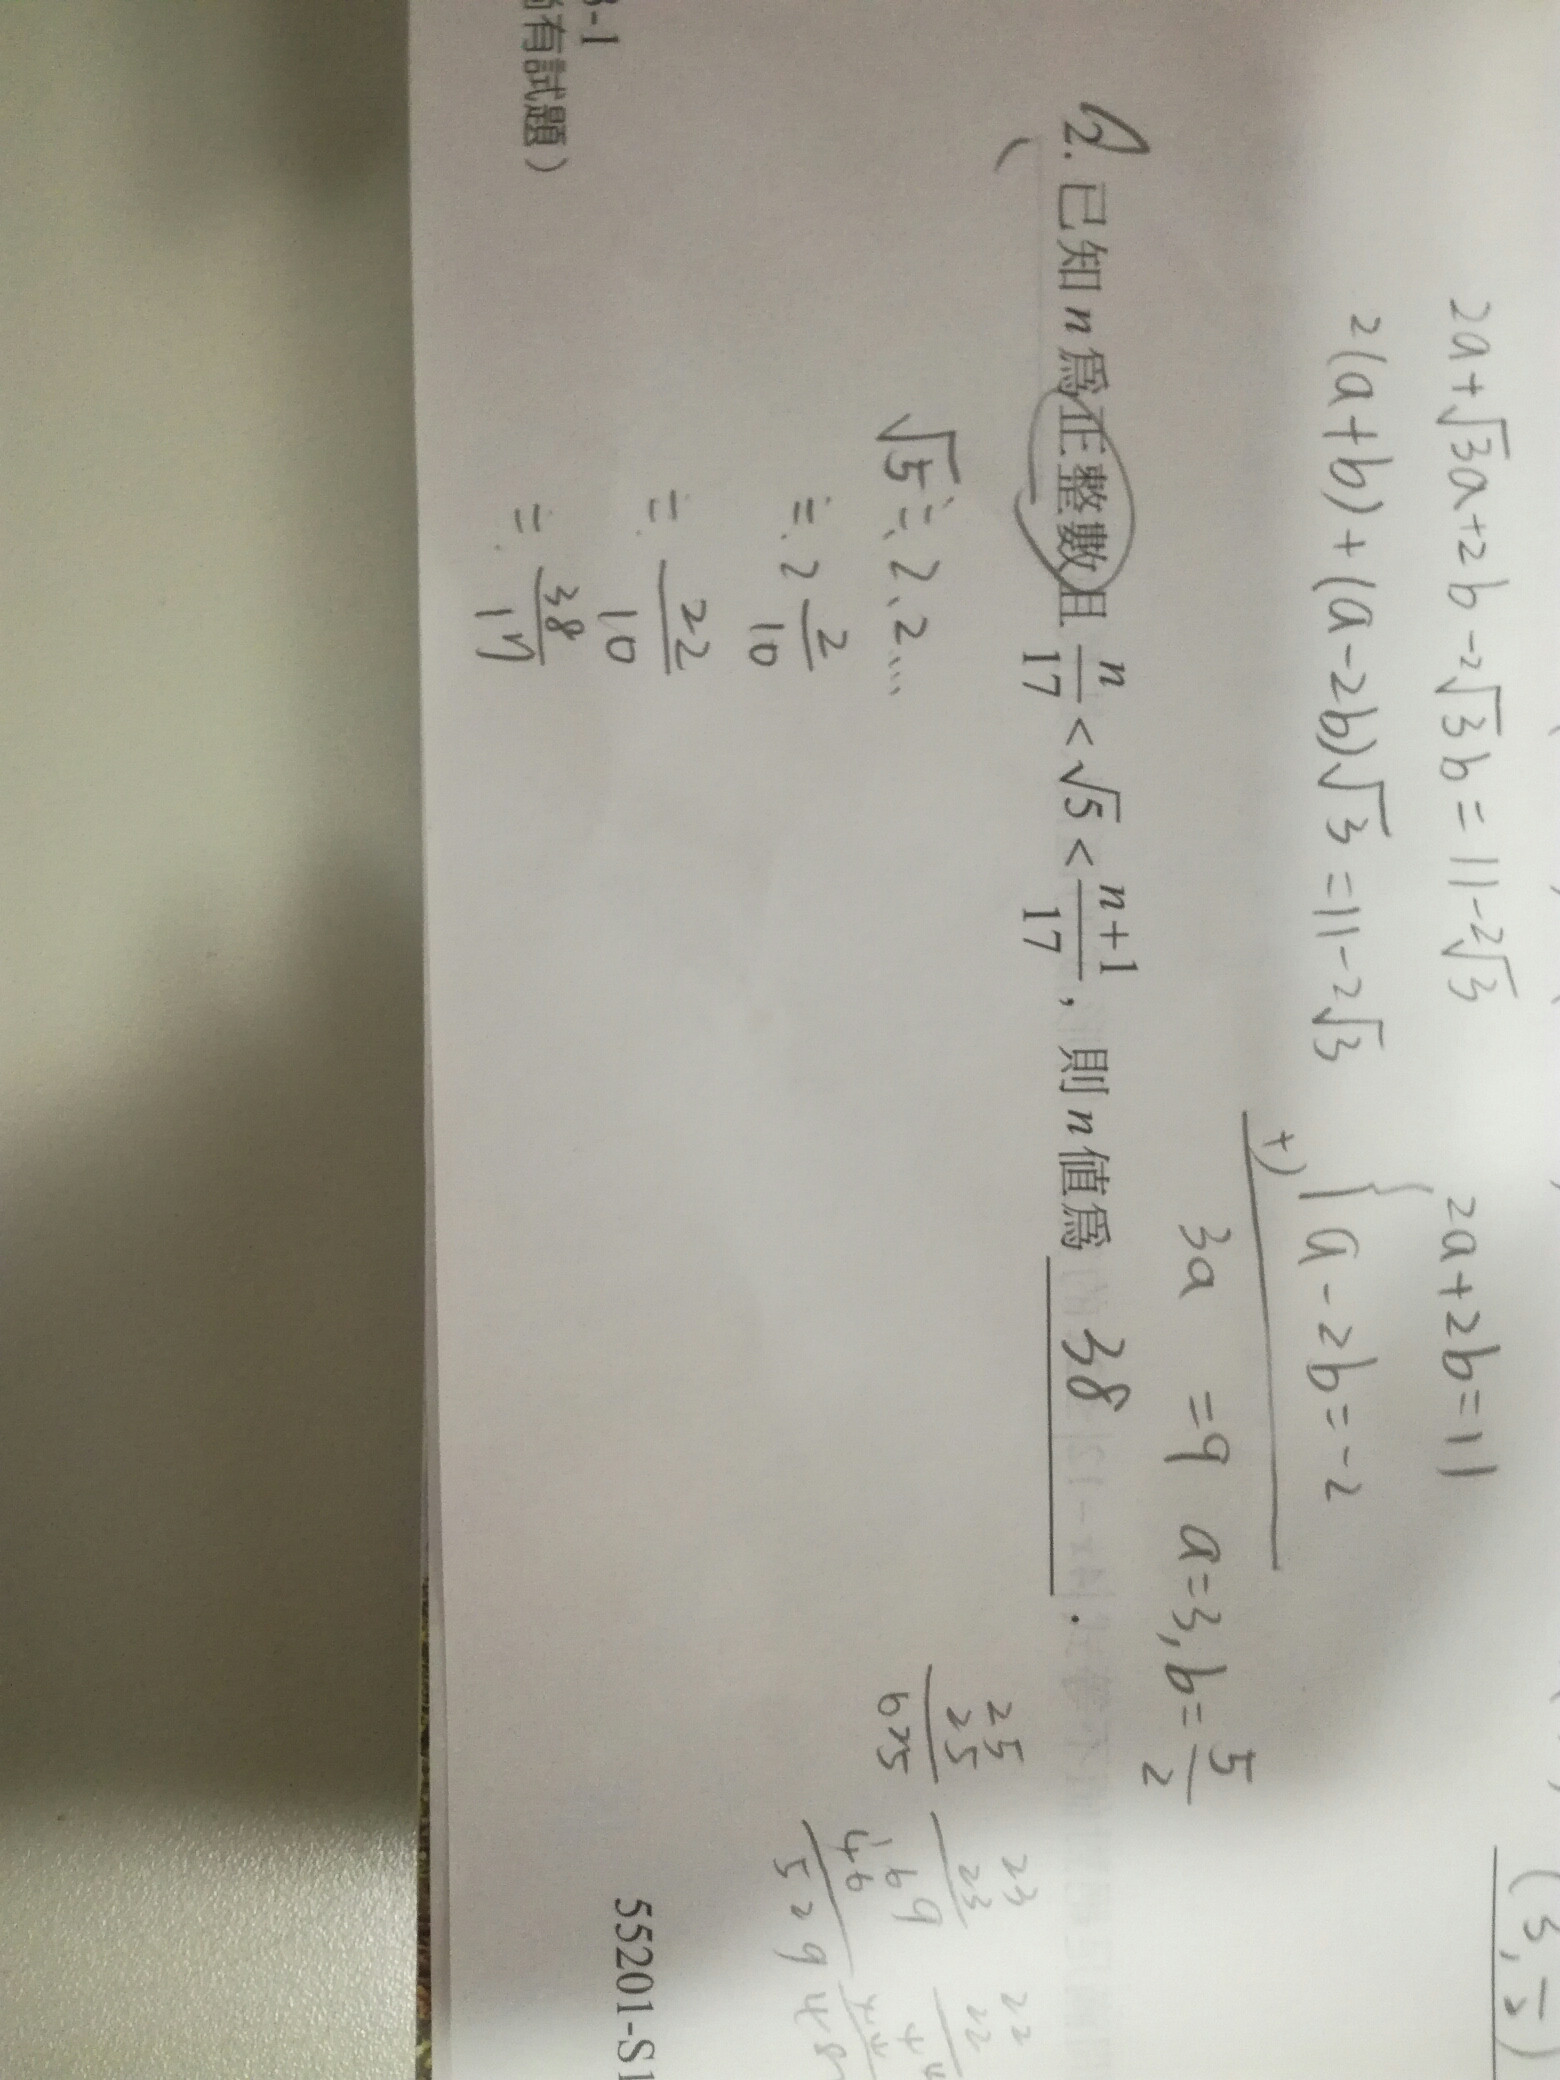 2a+√3a+2b-2√3b=11-2√3
2(a+b)+(a-2b)√3=11-2√3
2a+2b=11
+) a-2b=-2
3a =9 a=3, b=5/2
2. 已知n為正整數且 n/17 < √5 < (n+1)/17，則n值為 38 .
√5≒2.2...
≒2 2/10
≒22/10
≒38/17
25
25
625
23
23
69
46
529
22
22
3-1
有試題）
55201-S1